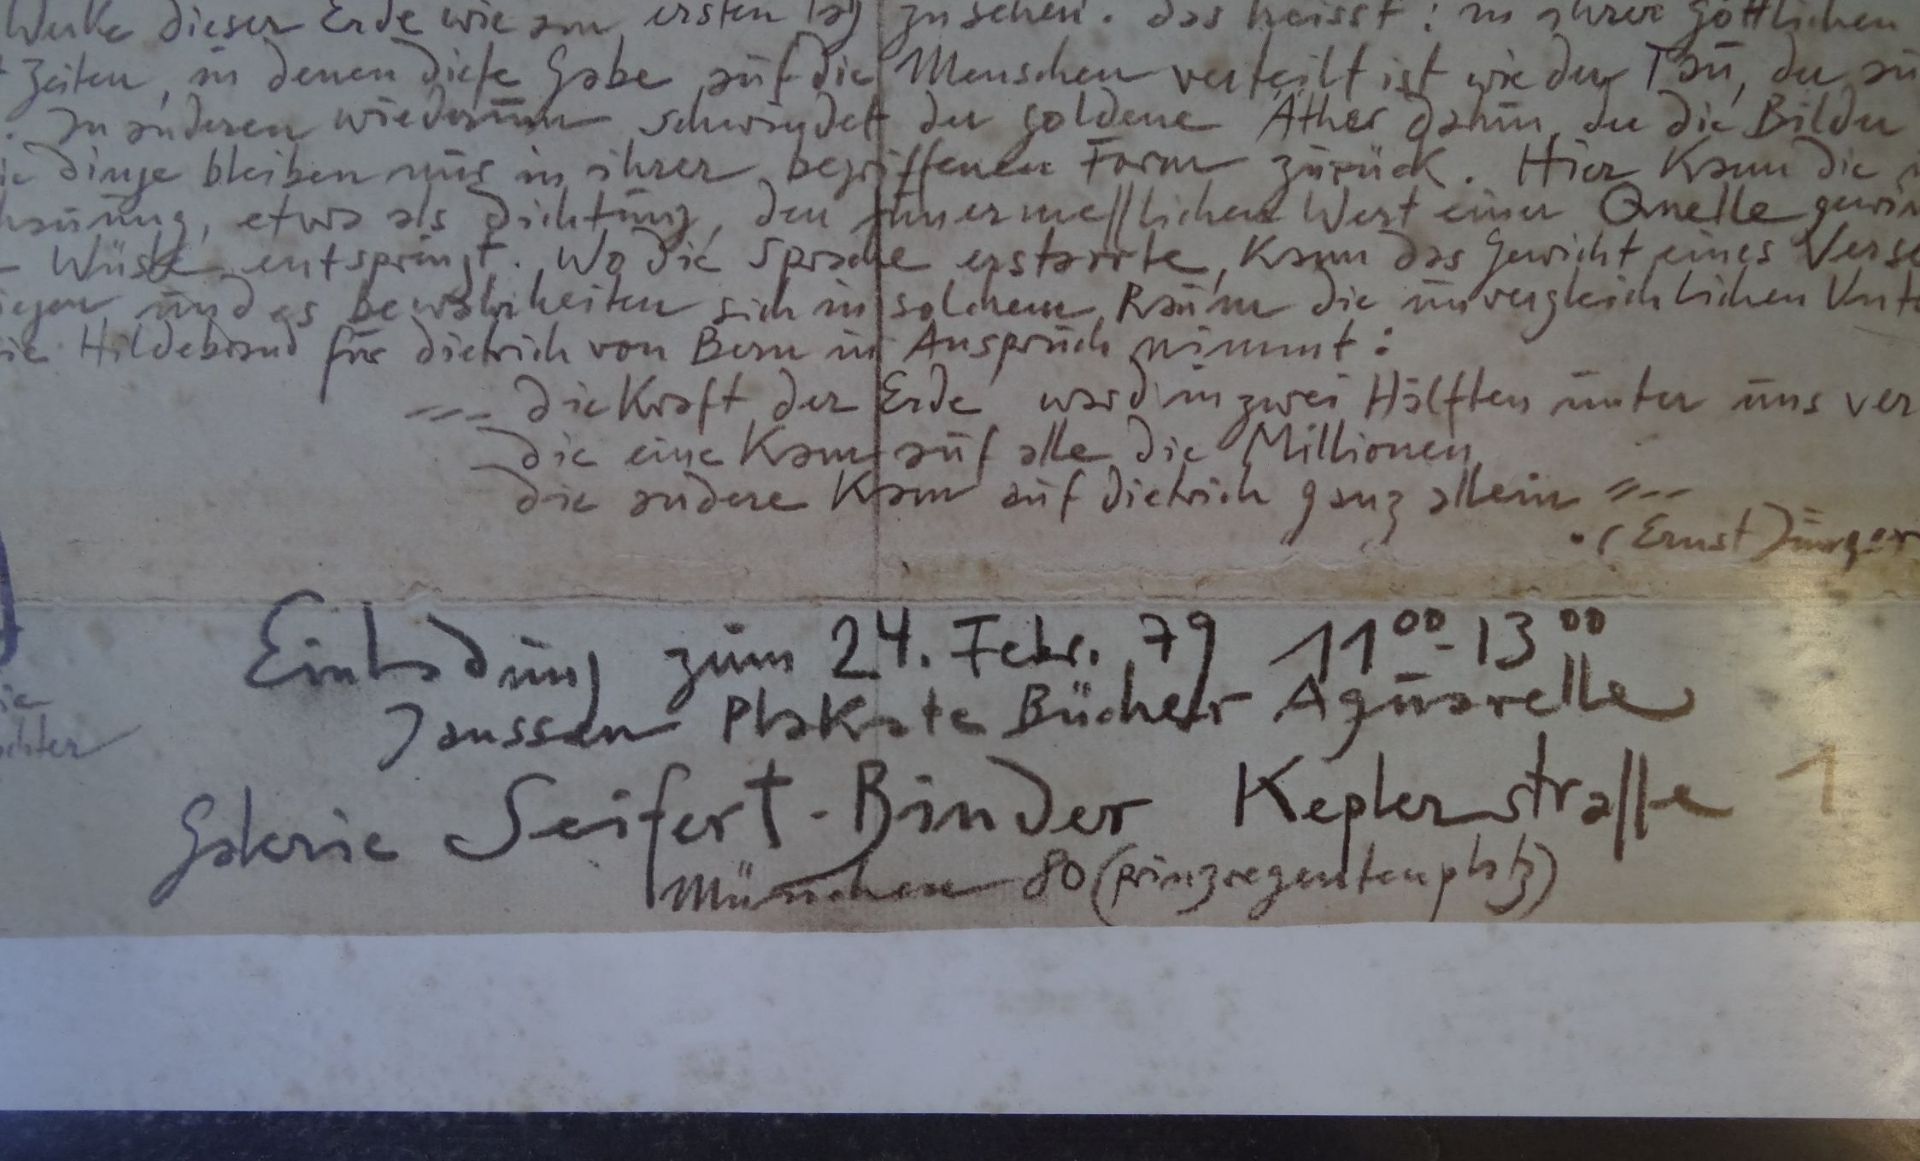 Werke dieser Erde wie am ersten Tag zu sehen. das heisst: in ihrer göttlichen
Zeiten, in denen diese Gabe auf die Menschen verteilt ist wie der Tau, der au
. In anderen wiederum schwindet der goldene Äther dahin, der die Bilder
ie dinge bleiben nur in ihrer begriffenen Form zurück. Hier kann die
hauung, etwa als Dichtung, den unermesslichen Wert einer Quelle gewin
Wüste entspringt. Wo die Sprache erstarrte, kann das Gewicht eines Verse
iegen und es bewahrheiten sich in solchem Raum die unvergleichlichen Unte
ie Hildebrand für Dietrich von Bern in Anspruch nimmt:
die Kraft der Erde ward in zwei Hälften unter uns ver
die eine kam auf alle die Millionen
die andere kam auf Dietrich ganz allein
(Ernst Jünger
Einladung zum 24. Febr. 79 11⁰⁰-13⁰⁰
Janssen Plakate Bücher Aquarelle
Galerie Seifert-Binder Keplerstraße 1
München 80 (prinzregentenplatz)